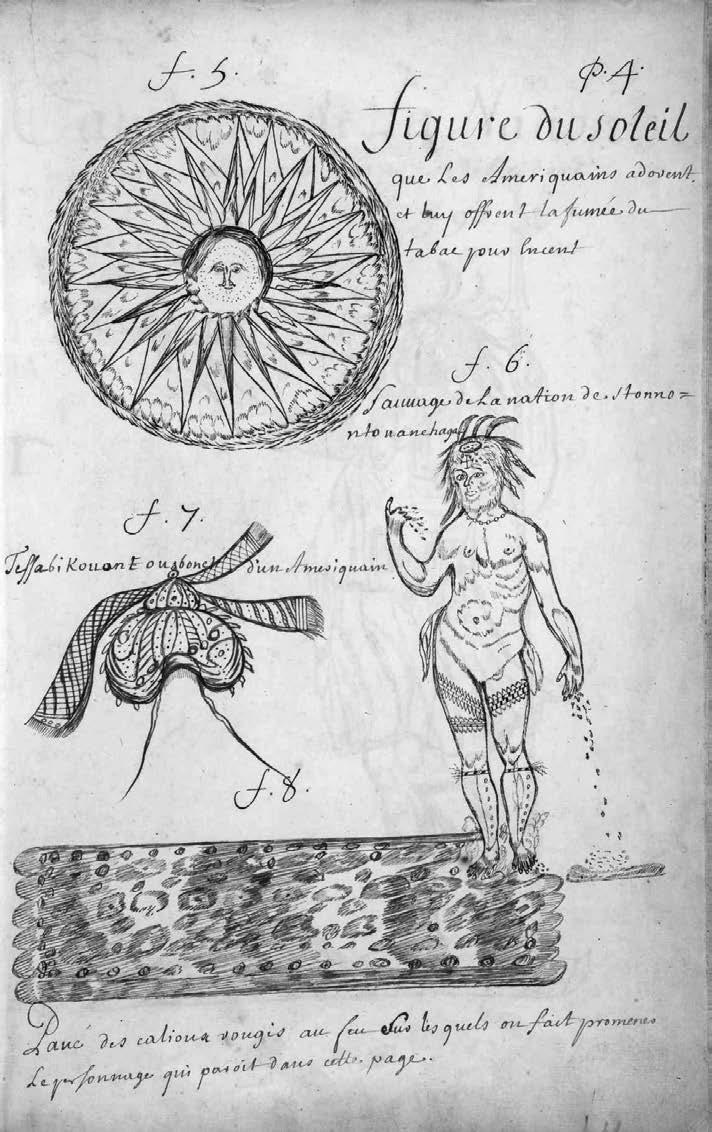 f. 5.
P. 4.
figure du soleil
que Les Ameriquains adorent.
et luy offrent la fumée du
tabac pour Encent
f. 6.
Sauvage de La nation de
f. 7.
d'un Ameriquain
f. 8.
Pavé des calioux rougis au feu Sur les quels on fait promener
Le personnage qui paroit dans cette page.